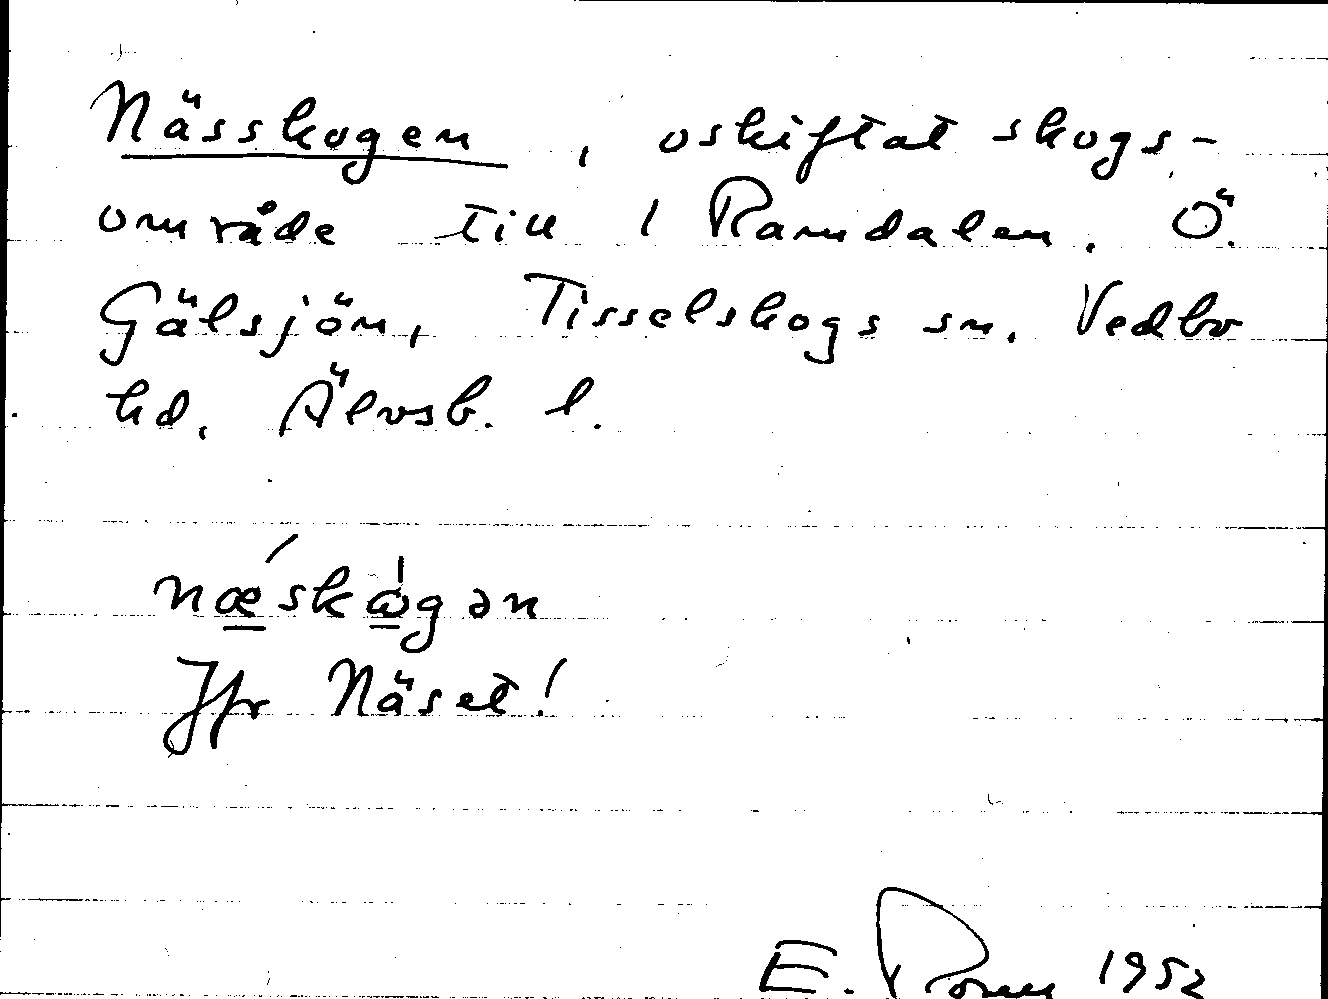 Nässkogen, oskiftat skogs-
område till 1 Ramdalen. Ö.
Gälsjön, Tisselskogs sn. Vedbo
hd. Älvsb. l.
nǽ̲skω̲̍gən
Jfr Näset!
E. 1952